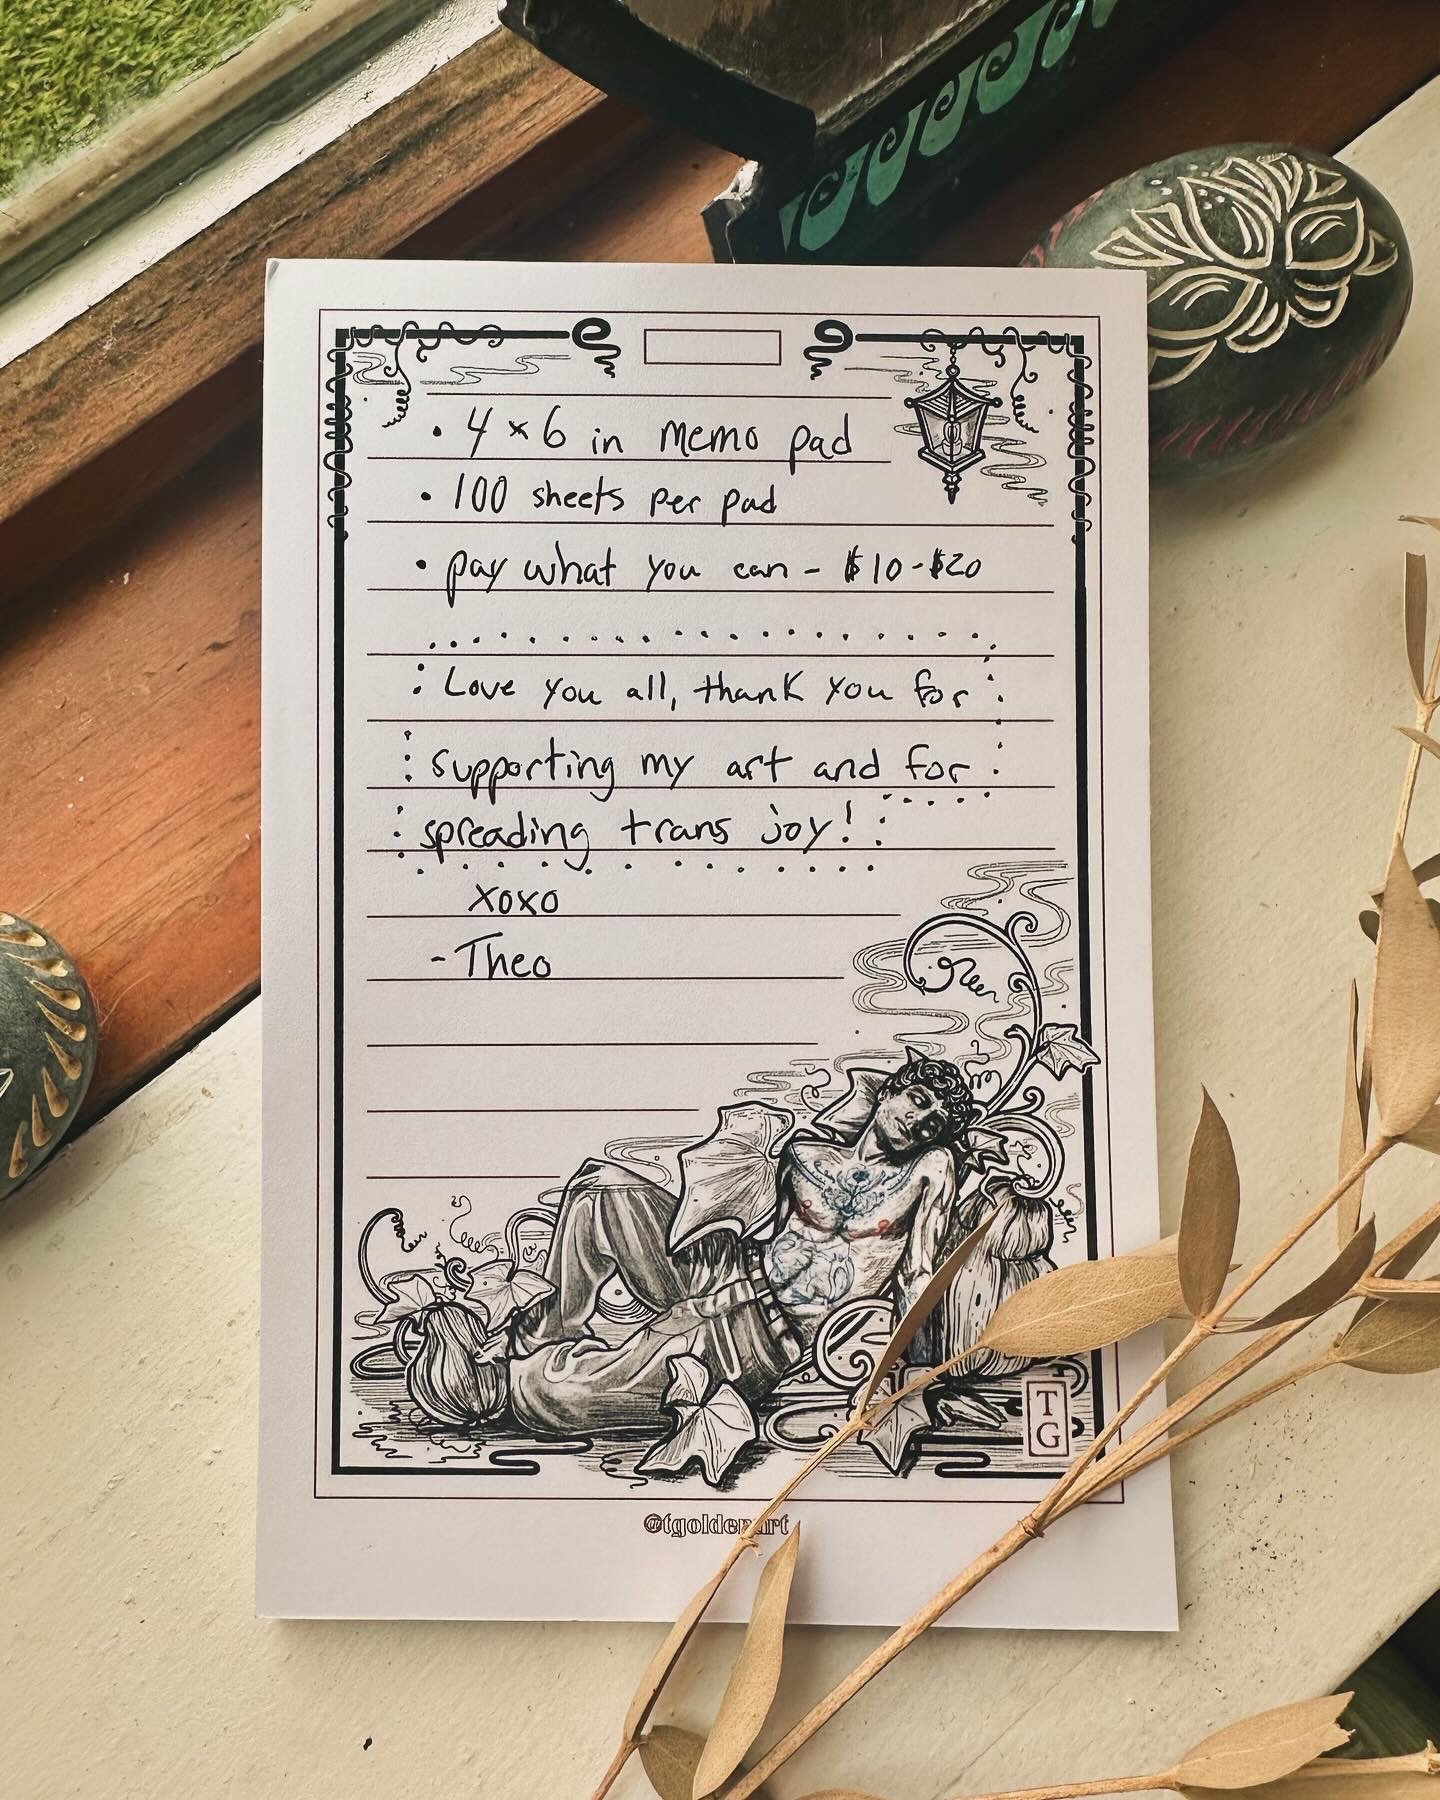 • 4 × 6 in memo pad
• 100 sheets per pad
• pay what you can - $10-$20
Love you all, thank you for
supporting my art and for
spreading trans joy!
xoxo
- Theo
TG
@tgoldenart